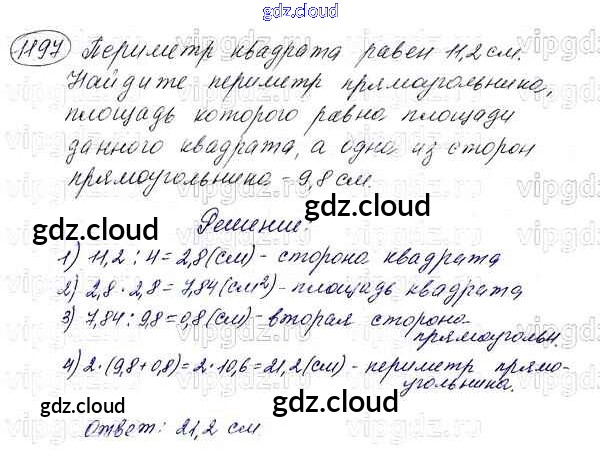 gdz.cloud
1197 Периметр квадрата равен 11,2 см.
Найдите периметр прямоугольника,
площадь которого равна площади
данного квадрата, а одна из сторон
прямоугольника - 9,8 см.
gdz.cloud
gdz.cloud
Решение:
1) 11,2 : 4 = 2,8 (см) - сторона квадрата
gdz.cloud
2) 2,8 · 2,8 = 7,84 (см²) - площадь квадрата
3) 7,84 : 9,8 = 0,8 (см) - вторая сторона
прямоугольн.
4) 2 · (9,8 + 0,8) = 2 · 10,6 = 21,2 (см) - периметр прямо-
угольника.
gdz.cloud
gdz.cloud
Ответ: 21,2 см